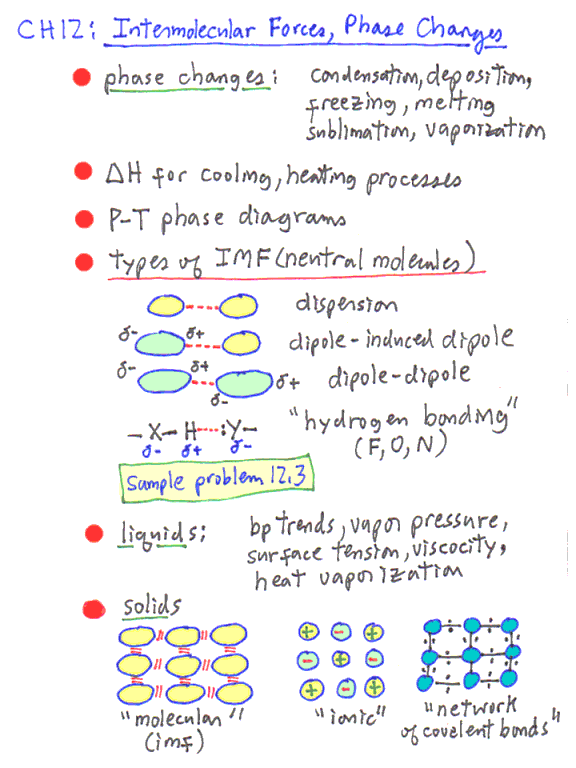 CH12: Intermolecular Forces, Phase Changes
phase changes: condensation, deposition,
freezing, melting
sublimation, vaporization
ΔH for cooling, heating processes
P-T phase diagrams
types of IMF (neutral molecules)
dispersion
δ- δ+ dipole-induced dipole
δ- δ+ δ- δ+ dipole-dipole
"hydrogen bonding"
-X-H:Y-
(F, O, N)
δ- δ+ δ-
Sample problem 12.3
liquids: bp trends, vapor pressure,
surface tension, viscocity,
heat vaporization
solids
+ - +
- + -
+ - +
"molecular" "ionic" "network
(imf) of covelent bonds"